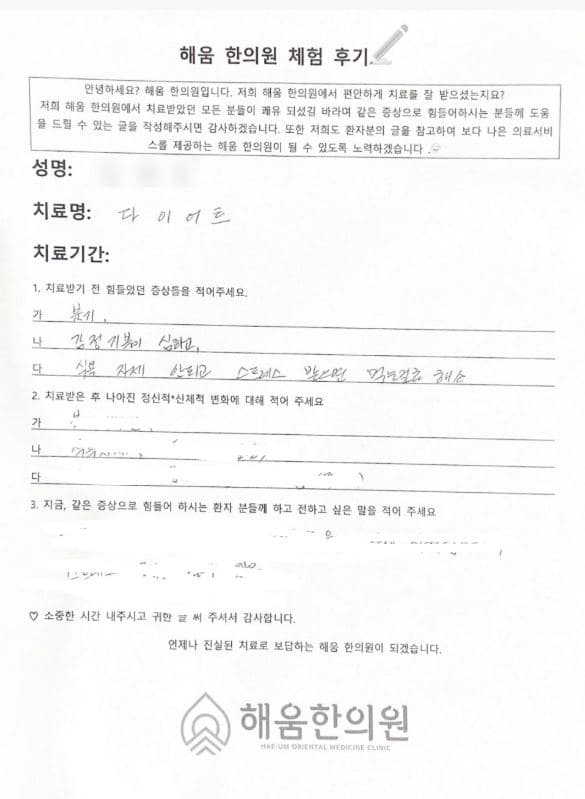 해움 한의원 체험 후기
안녕하세요? 해움 한의원입니다. 저희 해움 한의원에서 편안하게 치료를 잘 받으셨는지요?
저희 해움 한의원에서 치료받았던 모든 분들이 쾌유 되셨길 바라며 같은 증상으로 힘들어하시는 분들께 도움
을 드릴 수 있는 글을 작성해주시면 감사하겠습니다. 또한 저희도 환자분의 글을 참고하여 보다 나은 의료서비
스를 제공하는 해움 한의원이 될 수 있도록 노력하겠습니다.
성명:
치료명: 다이어트
치료기간:
1. 치료받기 전 힘들었던 증상들을 적어주세요.
가 붓기,
나 감정기복이 심하고,
다 식욕 자제 안되고 스트레스 받으면 먹는걸로 해소
2. 치료받은 후 나아진 정신적*신체적 변화에 대해 적어 주세요
가
나
다
3. 지금, 같은 증상으로 힘들어 하시는 환자 분들께 하고 전하고 싶은 말을 적어 주세요
♡ 소중한 시간 내주시고 귀한 글 써 주셔서 감사합니다.
언제나 진실된 치료로 보답하는 해움 한의원이 되겠습니다.
해움한의원
HAE:UM ORIENTAL MEDICINE CLINIC